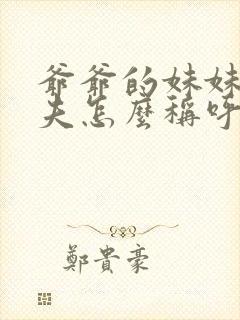 爺爺的妹妹
夫怎麼稱呼
鄭貴豪